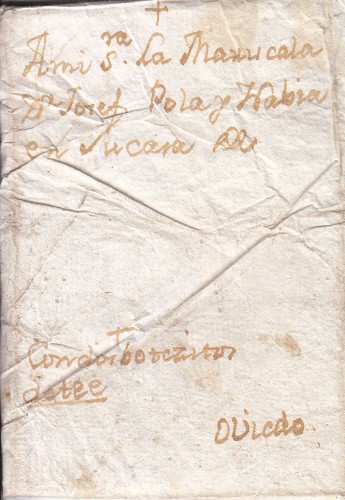 +
Ami s.ra La Manucala
Dn Josef Pola y Habia
en su casa
Con dos botecitos
dete
Oviedo